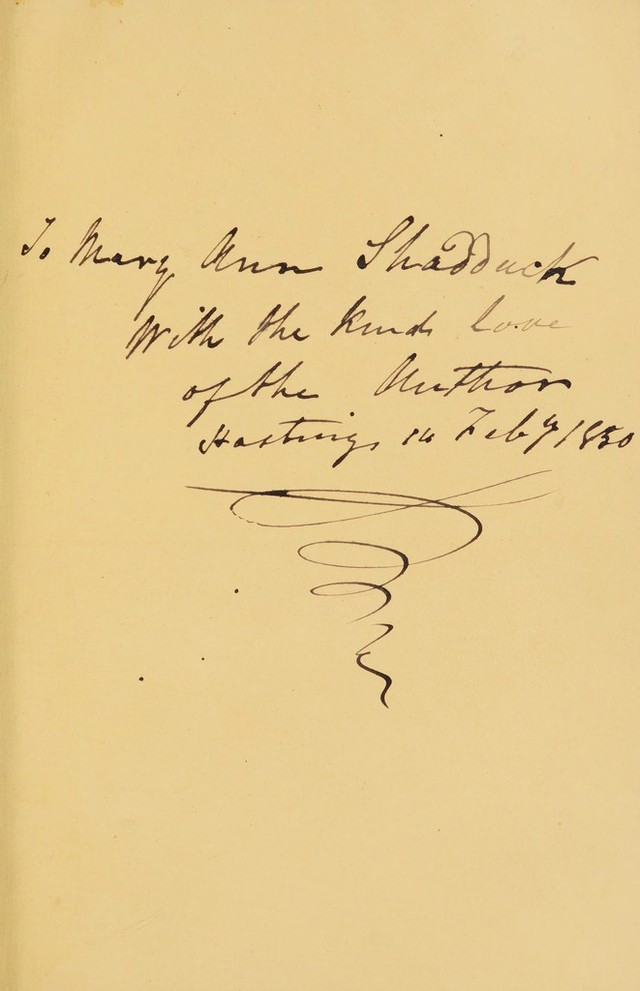 To Mary Ann Shadduck
With the kind love
of the Author
Hastings 14 Feby 1850